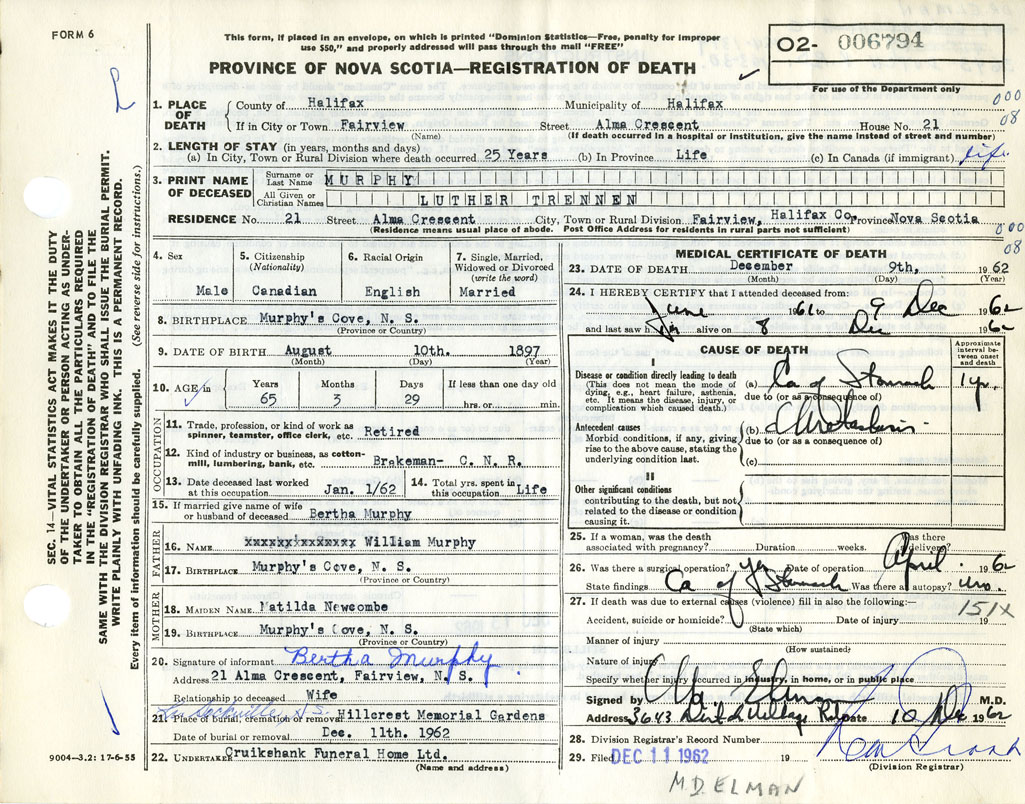 FORM 6
This form, if placed in an envelope, on which is printed "Dominion Statistics—Free, penalty for improper
use $50," and properly addressed will pass through the mail "FREE"
PROVINCE OF NOVA SCOTIA—REGISTRATION OF DEATH
02- 006794
For use of the Department only
SEC. 14—VITAL STATISTICS ACT MAKES IT THE DUTY
OF THE UNDERTAKER OR PERSON ACTING AS UNDER-
TAKER TO OBTAIN ALL THE PARTICULARS REQUIRED
IN THE "REGISTRATION OF DEATH" AND TO FILE THE
SAME WITH THE DIVISION REGISTRAR WHO SHALL ISSUE THE BURIAL PERMIT.
WRITE PLAINLY WITH UNFADING INK. THIS IS A PERMANENT RECORD.
Every item of information should be carefully supplied. (See reverse side for instructions.)
1. PLACE OF DEATH
County of Halifax Municipality of Halifax
000
If in City or Town Fairview Street Alma Crescent House No. 21
08
(Name) (If death occurred in a hospital or institution, give the name instead of street and number)
2. LENGTH OF STAY (in years, months and days)
(a) In City, Town or Rural Division where death occurred 25 Years (b) In Province Life (c) In Canada (if immigrant) Life
3. PRINT NAME OF DECEASED
Surname or Last Name MURPHY
All Given or Christian Names LUTHER TRENNEN
RESIDENCE No. 21 Street Alma Crescent City, Town or Rural Division Fairview, Halifax Co. Province Nova Scotia
(Residence means usual place of abode. Post Office Address for residents in rural parts not sufficient)
000
08
4. Sex
Male
5. Citizenship
(Nationality)
Canadian
6. Racial Origin
English
7. Single, Married,
Widowed or Divorced
(write the word)
Married
8. BIRTHPLACE Murphy's Cove, N. S.
(Province or Country)
9. DATE OF BIRTH August 10th. 1897
(Month) (Day) (Year)
10. AGE in
Years Months Days If less than one day old
65 3 29 hrs. or min.
OCCUPATION
11. Trade, profession, or kind of work as
spinner, teamster, office clerk, etc. Retired
12. Kind of industry or business, as cotton-
mill, lumbering, bank, etc. Brakeman- C. N. R.
13. Date deceased last worked
at this occupation Jan. 1/62
14. Total yrs. spent in
this occupation Life
15. If married give name of wife
or husband of deceased Bertha Murphy
FATHER
16. NAME xxxxxx xxxxxxx William Murphy
17. BIRTHPLACE Murphy's Cove, N. S.
(Province or Country)
MOTHER
18. MAIDEN NAME Matilda Newcombe
19. BIRTHPLACE Murphy's Cove, N. S.
(Province or Country)
20. Signature of informant Bertha Murphy
Address 21 Alma Crescent, Fairview, N. S.
Relationship to deceased Wife
Sackville N.S.
21. Place of burial, cremation or removal Hillcrest Memorial Gardens
Date of burial or removal Dec. 11th. 1962
22. UNDERTAKER Cruikshank Funeral Home Ltd.
(Name and address)
9004—3.2: 17-6-55
MEDICAL CERTIFICATE OF DEATH
23. DATE OF DEATH December 9th, 1962
(Month) (Day) (Year)
24. I HEREBY CERTIFY that I attended deceased from:
June 1961 to 9 Dec 1962
and last saw him alive on 8 Dec 1962
CAUSE OF DEATH
Approximate
interval be-
tween onset
and death
I
Disease or condition directly leading to death
(This does not mean the mode of
dying, e.g., heart failure, asthenia,
etc. It means the disease, injury, or
complication which caused death.)
(a) Ca of Stomach 1 yr.
due to (or as a consequence of)
Antecedent causes
Morbid conditions, if any, giving
rise to the above cause, stating the
underlying condition last.
(b) Metastasis
due to (or as a consequence of)
(c)
II
Other significant conditions
contributing to the death, but not
related to the disease or condition
causing it.
25. If a woman, was the death
associated with pregnancy? Duration weeks. Was there delivery?
26. Was there a surgical operation? Yes Date of operation April 1962
State findings Ca of Stomach Was there an autopsy? no.
27. If death was due to external causes (violence) fill in also the following:—
151X
Accident, suicide or homicide? Date of injury 19
(State which)
Manner of injury
(How sustained)
Nature of injury
Specify whether injury occurred in industry, in home, or in public place
Signed by M.D.
Address 3643 Dutch Village Rd Date 10 Dec 1962
28. Division Registrar's Record Number
29. Filed DEC 11 1962 19
(Division Registrar)
M.D. ELMAN